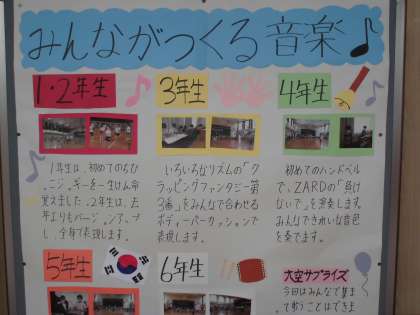 みんながつくる音楽♪
1・2年生
3年生
4年生
1年生は、初めてのちび
えました。2年生は、去
年よりもバージョンアップ
し、全身で表現します。
いろいろなリズムの「ク
ラッピングファンタジー第
3番」をみんなで合わせる
ボディーパーカッションで
表現します。
初めてのハンドベル
で、ZARDの「負け
ないで」を演奏します。
みんなできれいな音色
を奏でます。
5年生
6年生
大空サプライズ
今回はみんなで集まっ
て歌うことはできま